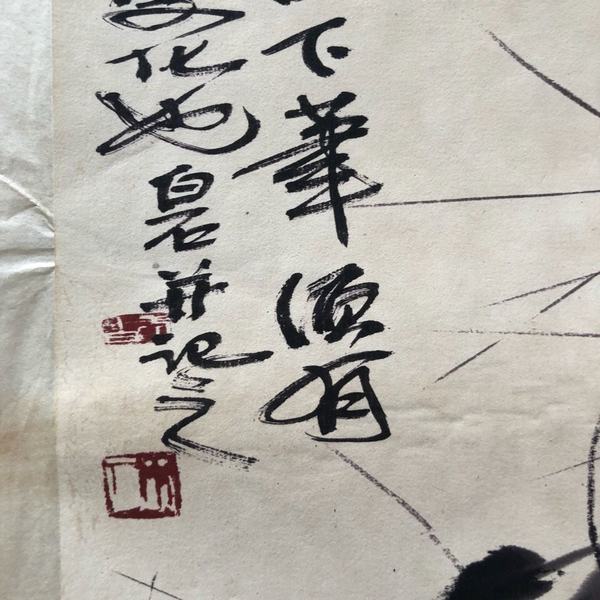 下筆須有
变化也白石并记之